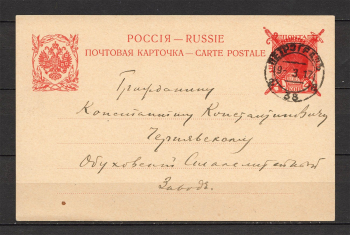 РОССІЯ — RUSSIE
ПОЧТОВАЯ КАРТОЧКА — CARTE POSTALE
ПЕТРОГРАДЪ
3.17
38
Гражданину
Константину Константиновичу
Чернявскому
Обуховский Сталелитейный
Заводъ.